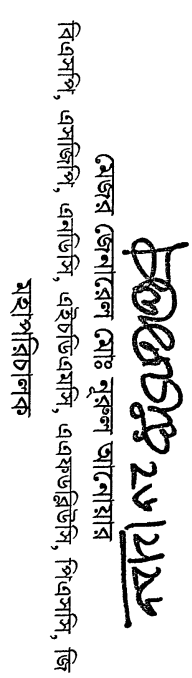 মেজর জেনারেল মোঃ নুরুল আনোয়ার
বিএসপি, এসজিপি, এনডিপি, এইচডিএমসি, এএফডব্লিউসি, পিএসসি, জি
মহাপরিচালক